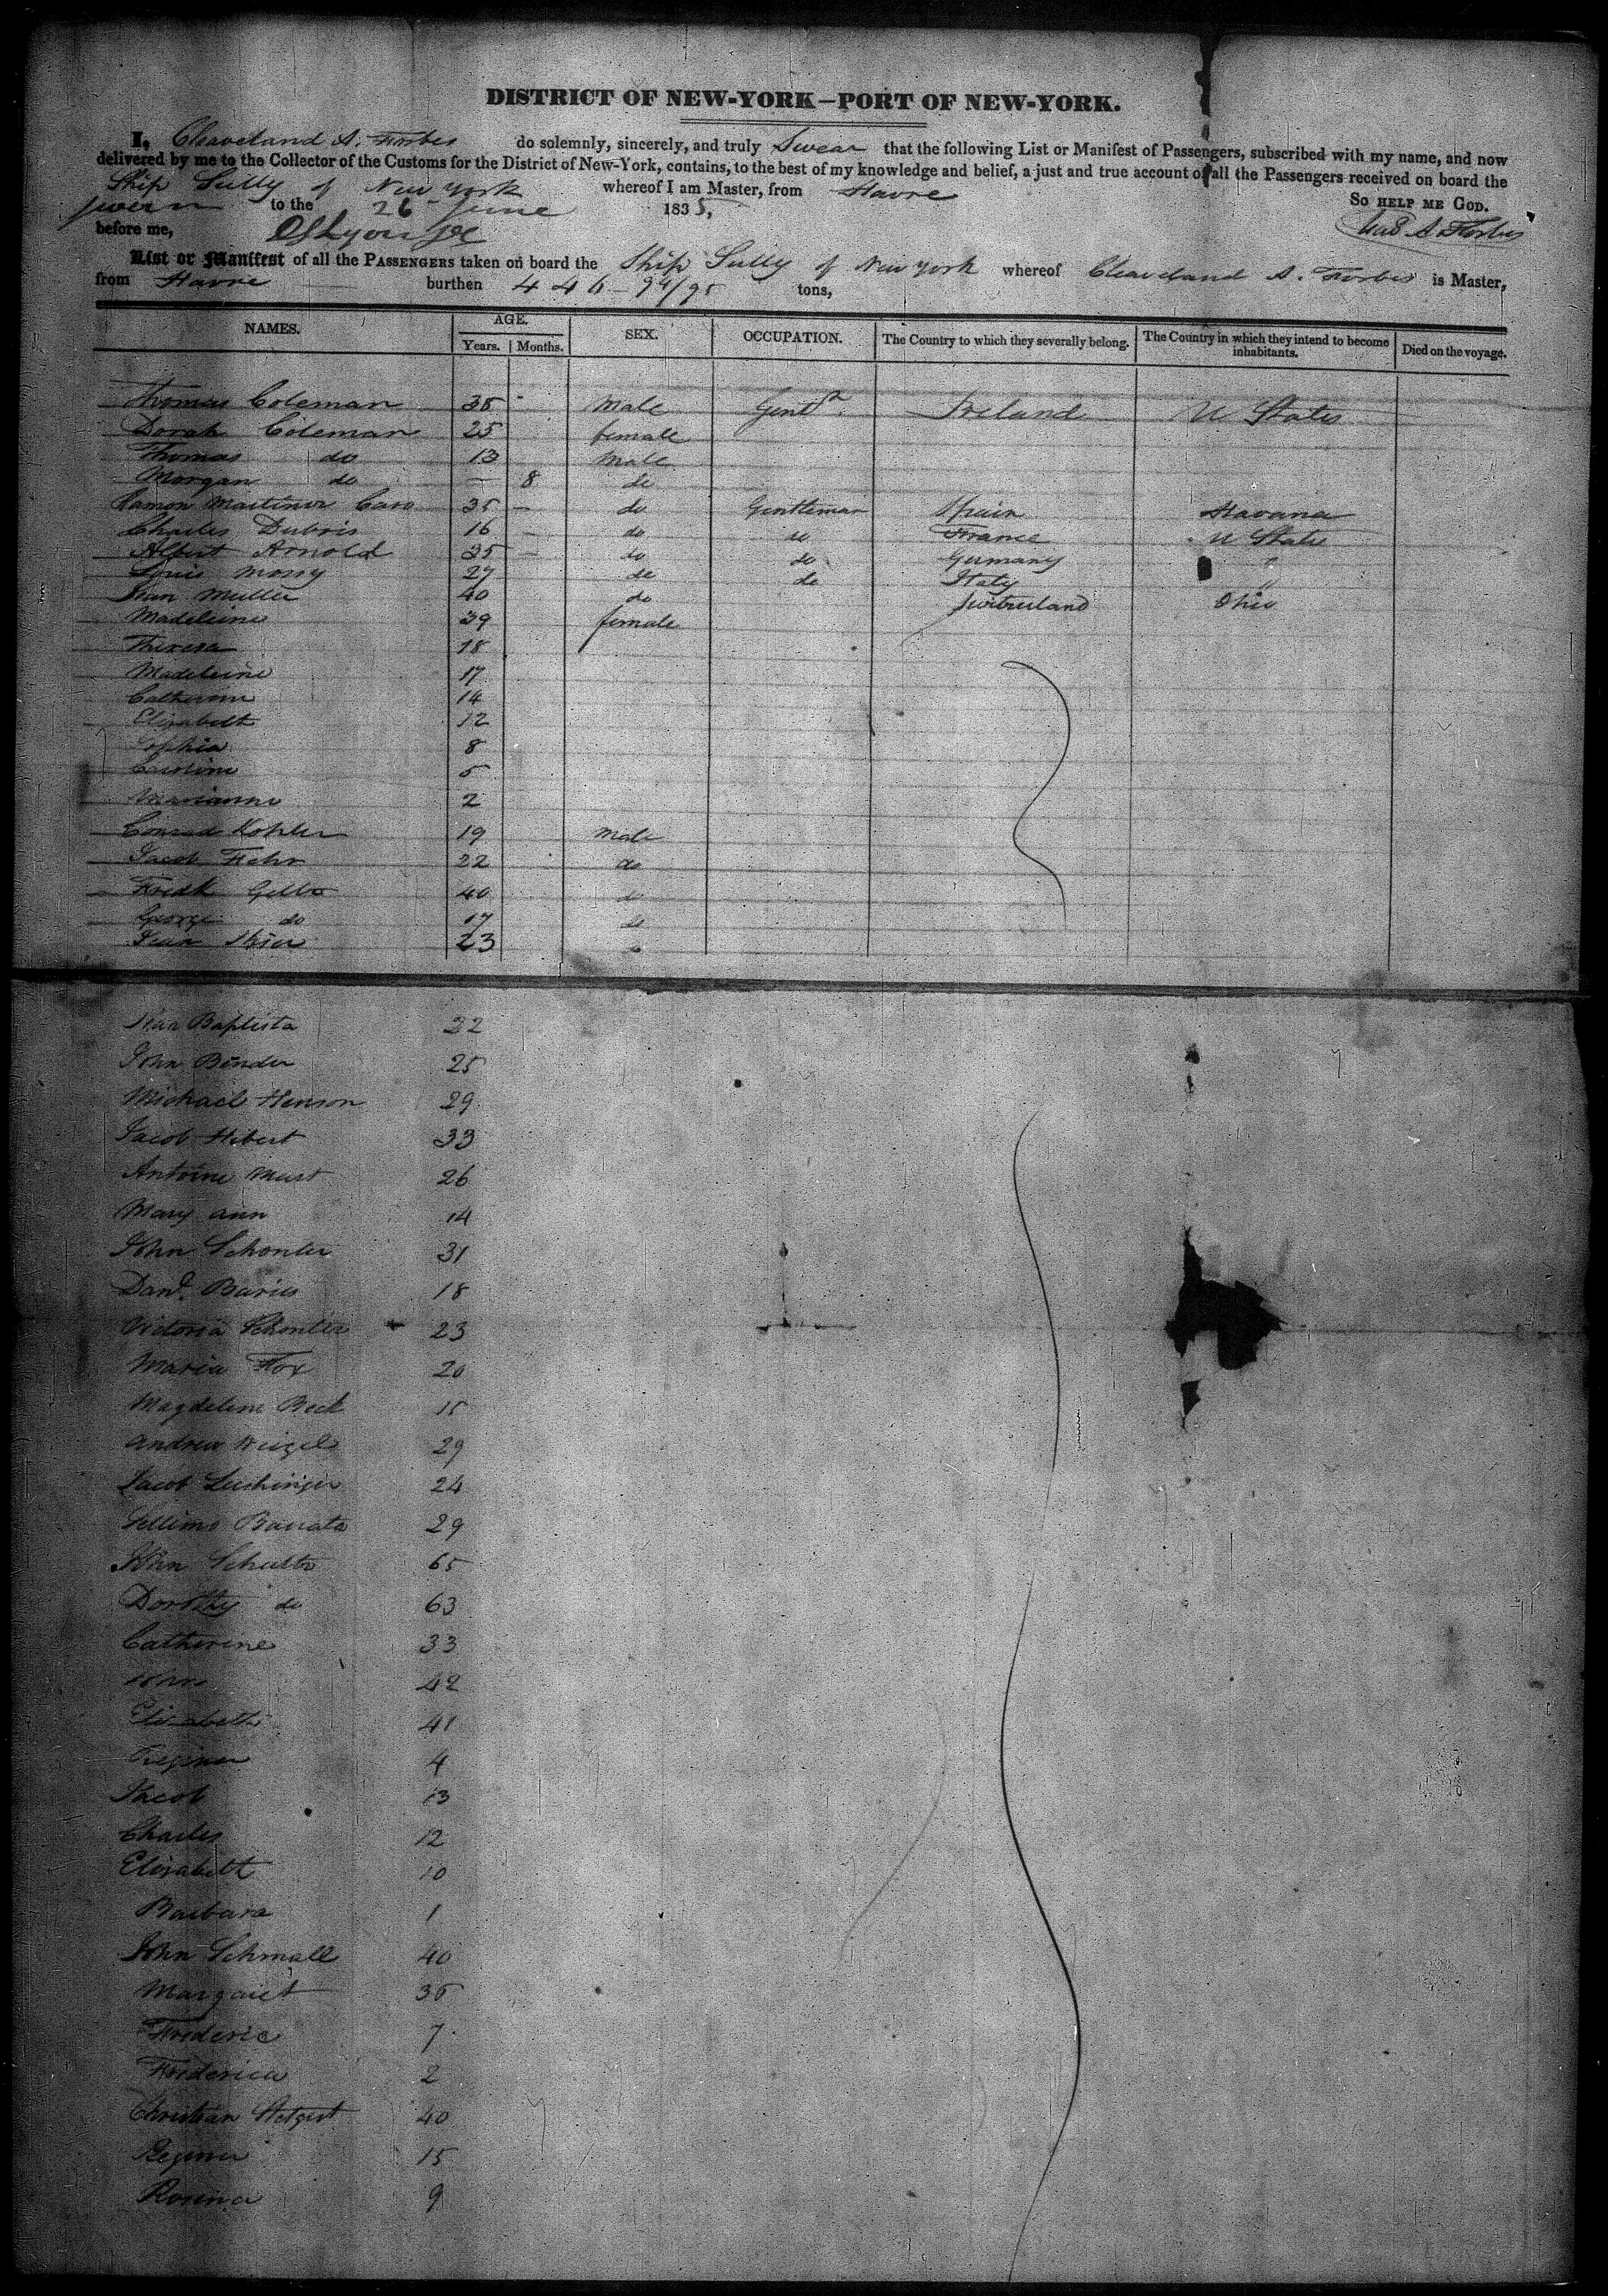 DISTRICT OF NEW-YORK—PORT OF NEW-YORK.
I, Cleaveland A. Forbes do solemnly, sincerely, and truly Swear that the following List or Manifest of Passengers, subscribed with my name, and now
delivered by me to the Collector of the Customs for the District of New-York, contains, to the best of my knowledge and belief, a just and true account of all the Passengers received on board the
Ship Sully of New York whereof I am Master, from Havre
sworn to the 26 June 1835, SO HELP ME GOD.
before me, A. Forbes
List or Manifest of all the PASSENGERS taken on board the Ship Sully of New York whereof Cleaveland A. Forbes is Master,
from Havre burthen 446-94/95 tons,
NAMES. AGE. SEX. OCCUPATION. The Country to which they severally belong. The Country in which they intend to become inhabitants. Died on the voyage.
Years. Months.
Thomas Coleman 38 Male Gent Ireland U States
Dorah Coleman 25 female
Thomas do 13 Male
Morgan do — 8 do
Ramon Martinez Caro 35 — do Gentleman Spain Havana
Charles Dubris 16 do do France U States
Albert Arnold 25 — do do Germany "
Louis Mossy 27 do do Italy "
Jean Muller 40 do Switzerland Ohio
Madeleine 39 female
Theresa 18
Madeleine 17
Catherine 14
Elizabeth 12
Sophia 8
Caroline 5
Marianne 2
Conrad Kohler 19 Male
Jacob Fehr 22 do
Fredk 40 do
George do 17 do
Jean 23 do
Jean Baptista 22
John Bender 25
Michael Henson 29
Jacob Hibert 33
Antoine Must 26
Mary ann 14
John Schonter 31
Danl. Baries 18
Victoria Schonter 23
Maria Fox 20
Magdelene Beck 15
Andrew Weigel 29
Jacob Luchinger 24
29
John Schultz 65
Dorothy do 63
Catherine 33
John 42
Elizabeth 41
Regina 4
Jacob 13
Charles 12
Elizabeth 10
Barbara 1
John Schmall 40
Margaret 35
Frederic 7
Frederica 2
Christian 40
Regina 15
Rosina 9